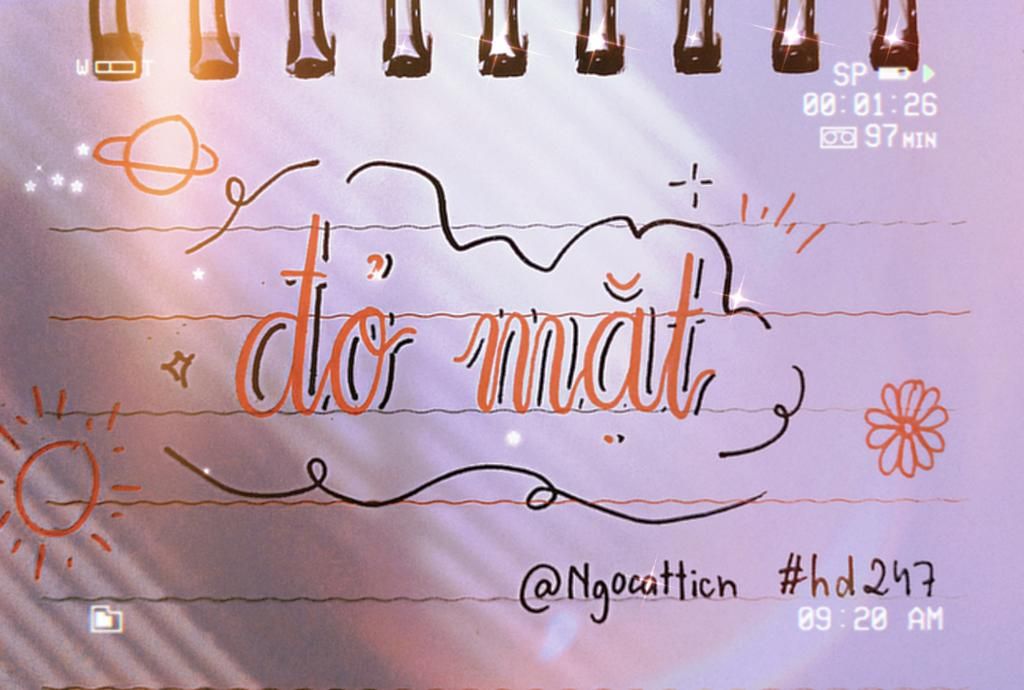 W T
SP
00:01:26
97 MIN
đỏ mặt
@Ngocatticn #hd247
09:20 AM